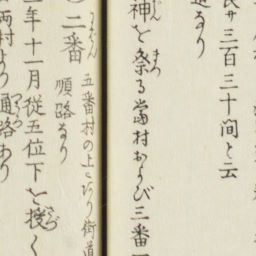 長サ三百三十間と云
道なり
神を祭る当村および三番
二番 五番村の上にあり街道
順路なり
年十一月従五位下を授く
両村より通路あり